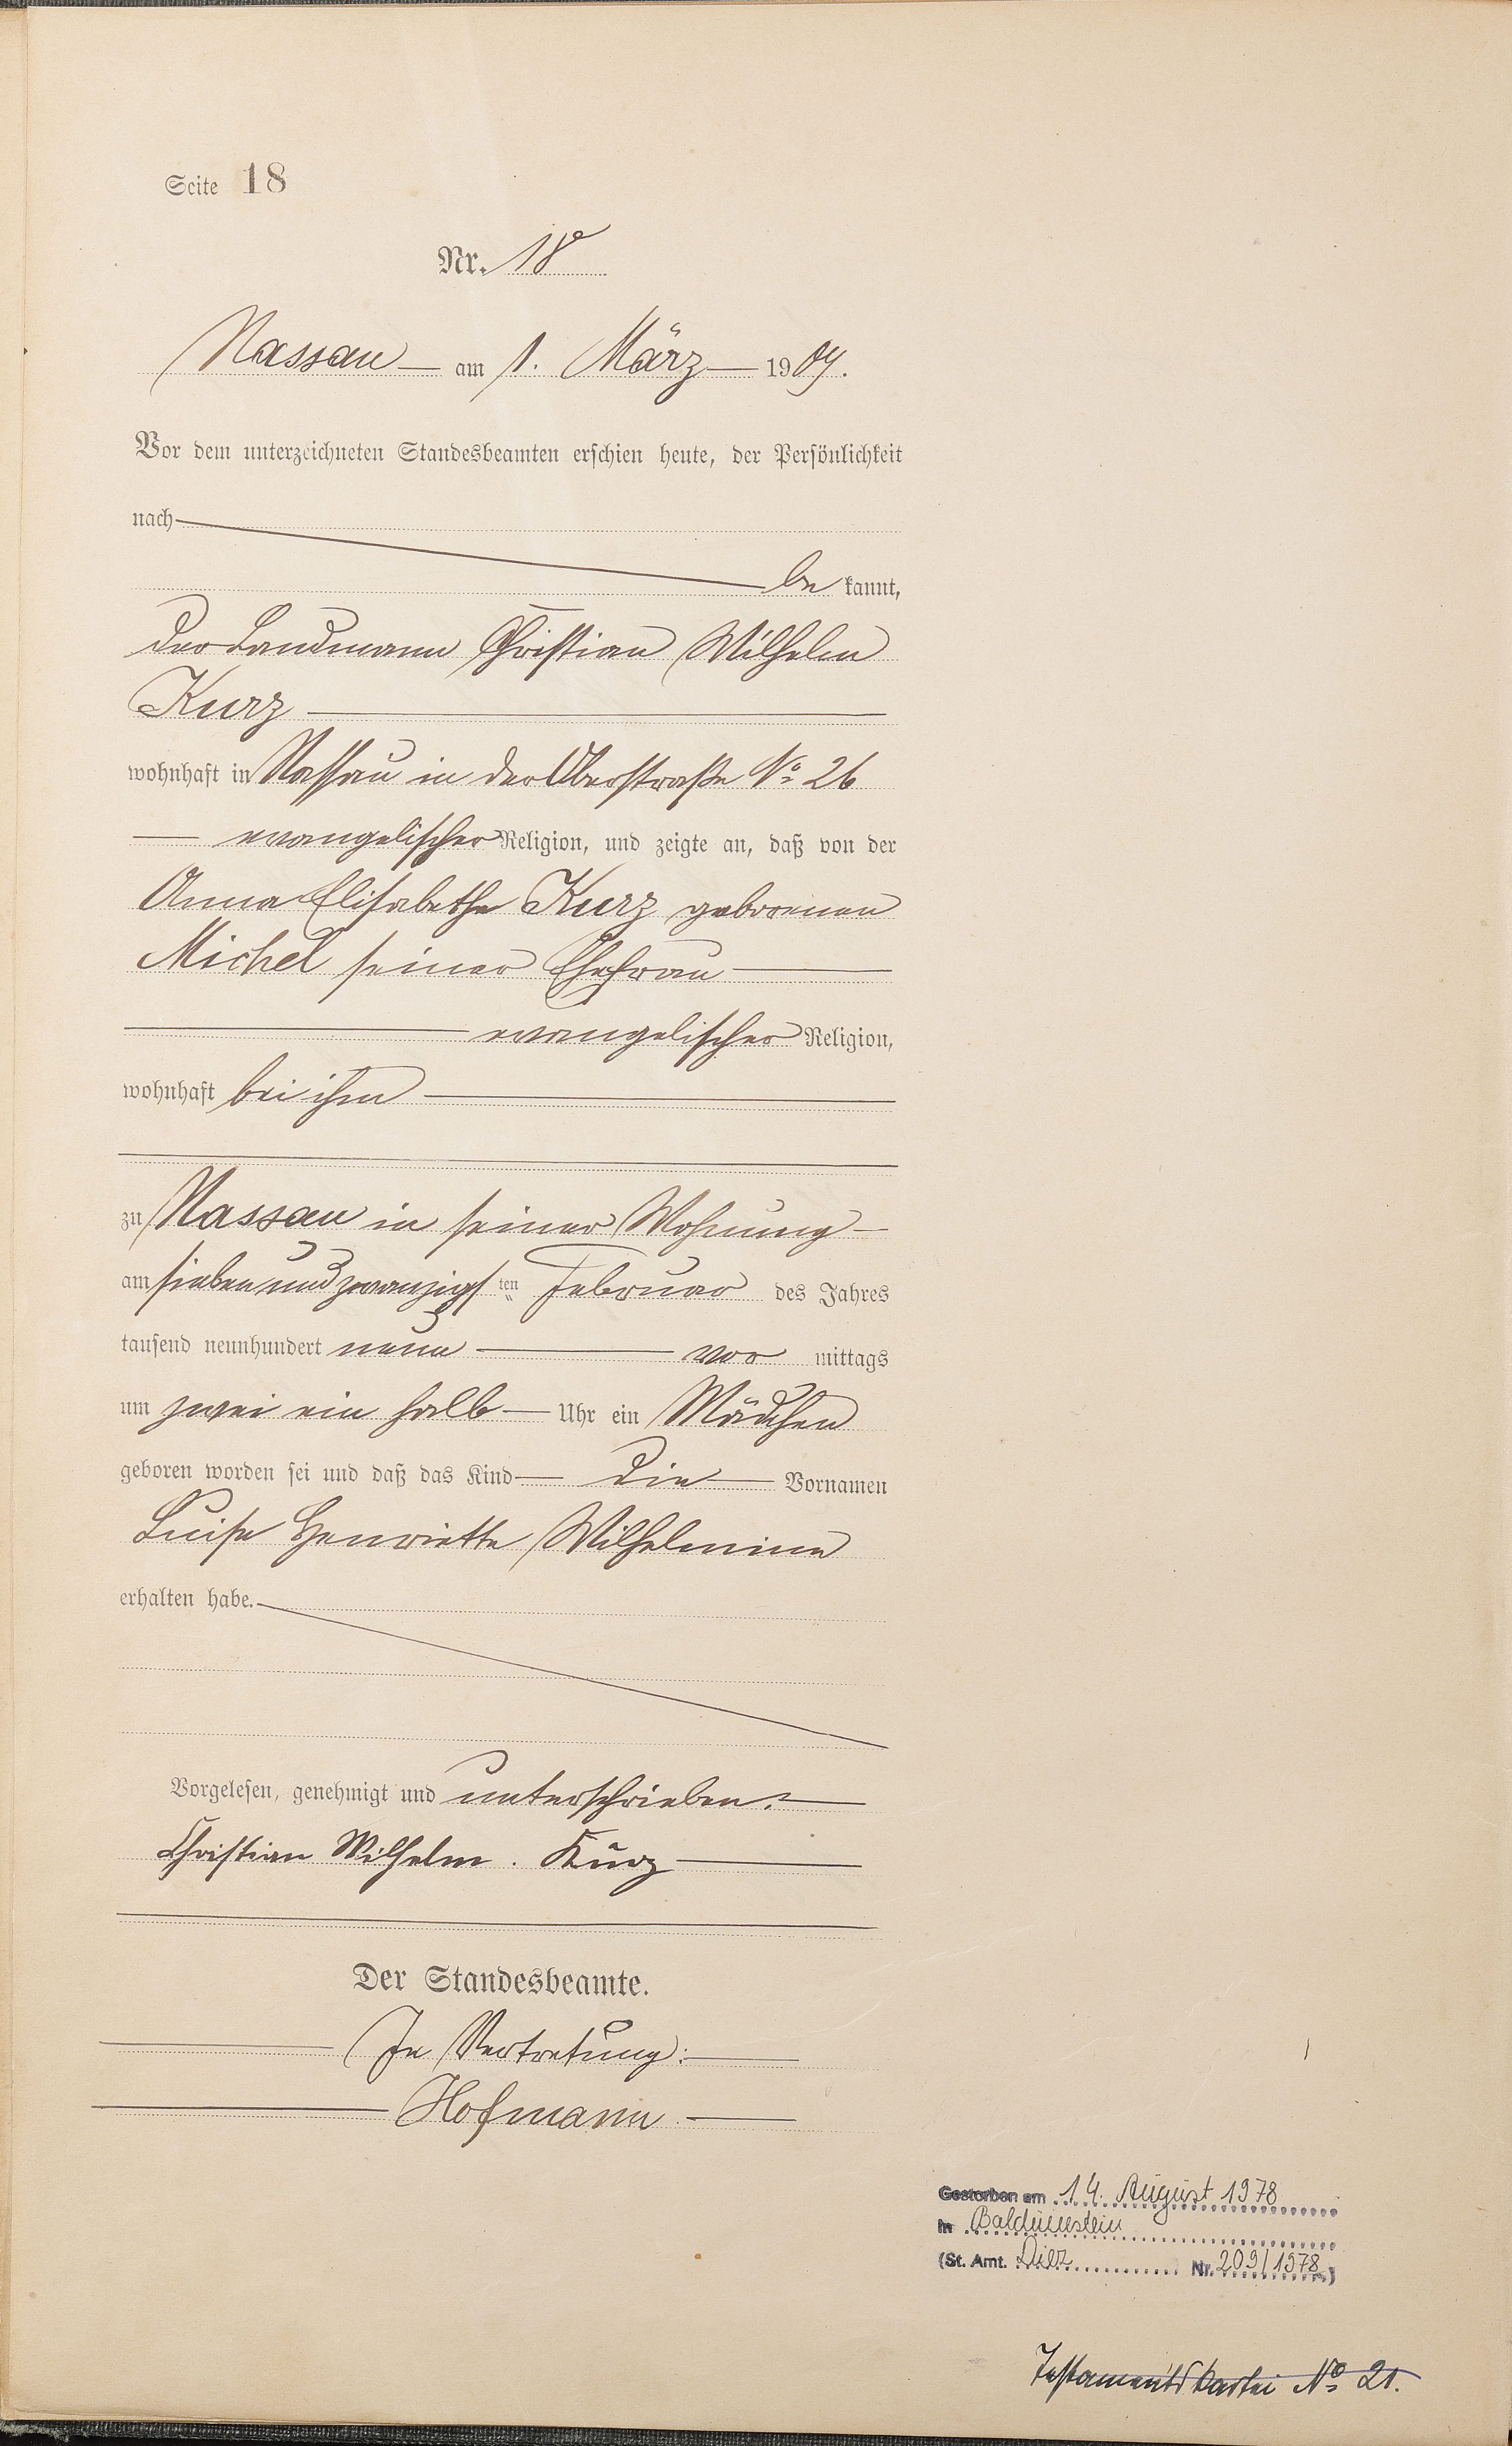 Seite 18
Nr. 18
Nassau am 1. März 1909.
Vor dem unterzeichneten Standesbeamten erschien heute, der Persönlichkeit
nach
be kannt,
der Landmann Christian Wilhelm
Kurz
wohnhaft in Nassau in der Oberstraße No 26
evangelischer Religion, und zeigte an, daß von der
Anna Elisabethe Kurz geborenen
Michel seiner Ehefrau
evangelischer Religion,
wohnhaft bei ihm
zu Nassau in seiner Wohnung
am siebenundzwanzigsten Februar des Jahres
tausend neunhundert neun vor mittags
um zwei ein halb Uhr ein Mädchen
geboren worden sei und daß das Kind die Vornamen
Luise Henriette Wilhelmine
erhalten habe.
Vorgelesen, genehmigt und unterschrieben.
Christian Wilhelm. Kurz
Der Standesbeamte.
In Vertretung:
Hofmann
Gestorben am 14. August 1978
in Balduinstein
(St. Amt. Diez Nr. 209/1978)
Testamentskartei No 21.